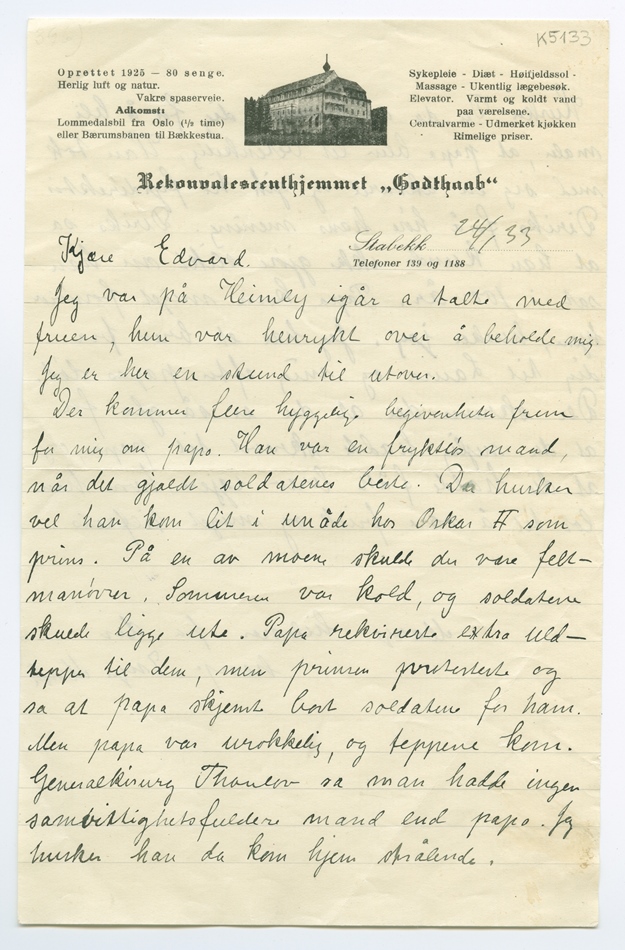 K5133
Oprettet 1925 — 80 senge.
Herlig luft og natur.
Vakre spaserveie.
Adkomst:
Lommedalsbil fra Oslo (½ time)
eller Bærumsbanen til Bækkestua.
Sykepleie - Diæt - Høifjeldssol -
Massage - Ukentlig lægebesøk.
Elevator. Varmt og koldt vand
paa værelsene.
Centralvarme - Udmerket kjøkken
Rimelige priser.
Rekonvalescenthjemmet „Godthaab“
Stabekk 24/1 33
Telefoner 139 og 1188
Kjære Edvard.
Jeg var på Heimly igår a talte med
fruen, hun var henrykt over å beholde mig
Jeg er her en stund til utover.
Der kommer flere hyggelige begivenheter frem
for mig om papa. Han var en fryktløs mand,
når det gjaldt soldatenes beste. Du husker
vel han kom lit i unåde hos Oskar II som
prins. På en av moene skulde der være felt-
manøvrer. Sommeren var kold, og soldatene
skulde ligge ute. Papa rekvirerte extra uld-
tepper til dem, men prinsen protesterte og
sa at papa skjemte bort soldatene for ham.
Men papa var urokkelig, og teppene kom.
Generalkirurg Thaulov sa man hadde ingen
samvittighetsfuldere mand end papa. Jeg
husker han da kom hjem strålende.